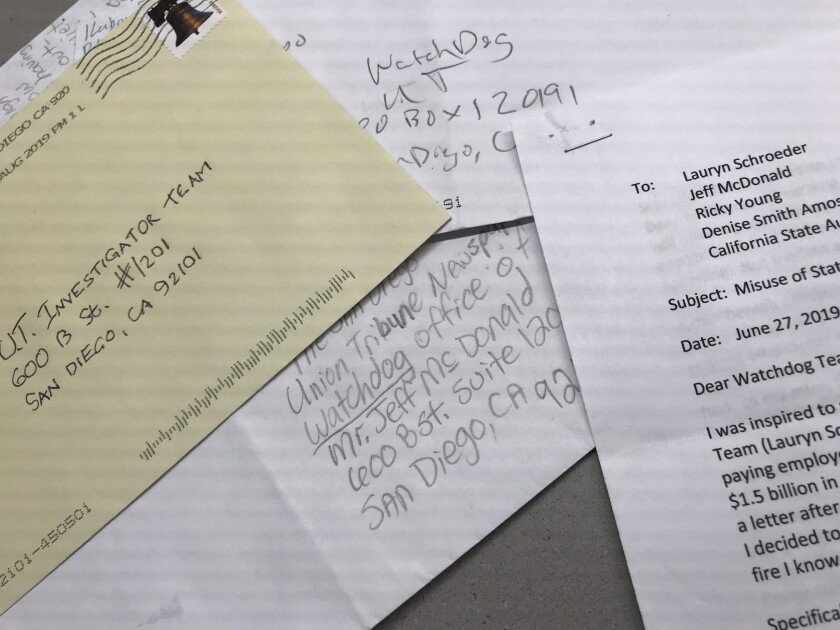 DIEGO CA 920
AUG 2019 PM 1 L
U.T. INVESTIGATOR TEAM
600 B St. #1201
SAN DIEGO, CA 92101
2101-450501
out
having
WatchDog
UT
PO BOX 120191
Diego, C
91
The San Diego
Union Tribune Newspa
Watchdog office of
Mr. Jeff Mc Donald
600 B St. Suite 120
SAN Diego, CA 92
To:
Lauryn Schroeder
Jeff McDonald
Ricky Young
Denise Smith Amos
California State Au
Subject: Misuse of Stat
Date: June 27, 2019
Dear Watchdog Tea
I was inspired to
Team (Lauryn Sc
paying employe
$1.5 billion in
a letter after
I decided to
fire I know
Specifica